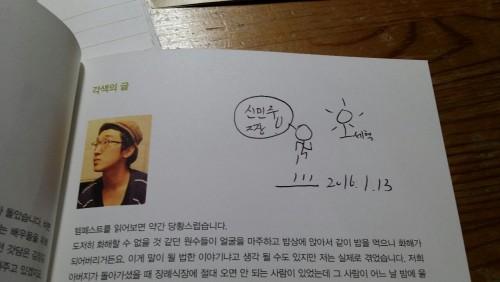 각색의 글
신민주
짱
세혁
2016.1.13
템페스트를 읽어보면 약간 당황스럽습니다.
도저히 화해할 수 없을 것 같던 원수들이 얼굴을 마주하고 밥상에 앉아서 같이 밥을 먹으니 화해가
되어버리거든요. 이게 말이 될 법한 이야기냐고 생각 될 수도 있지만 저는 실제로 겪었습니다. 저희
아버지가 돌아가셨을 때 장례식장에 절대 오면 안 되는 사람이 있었는데 그 사람이 어느 날 밤에 울
돌았습니다.
는 배우들을